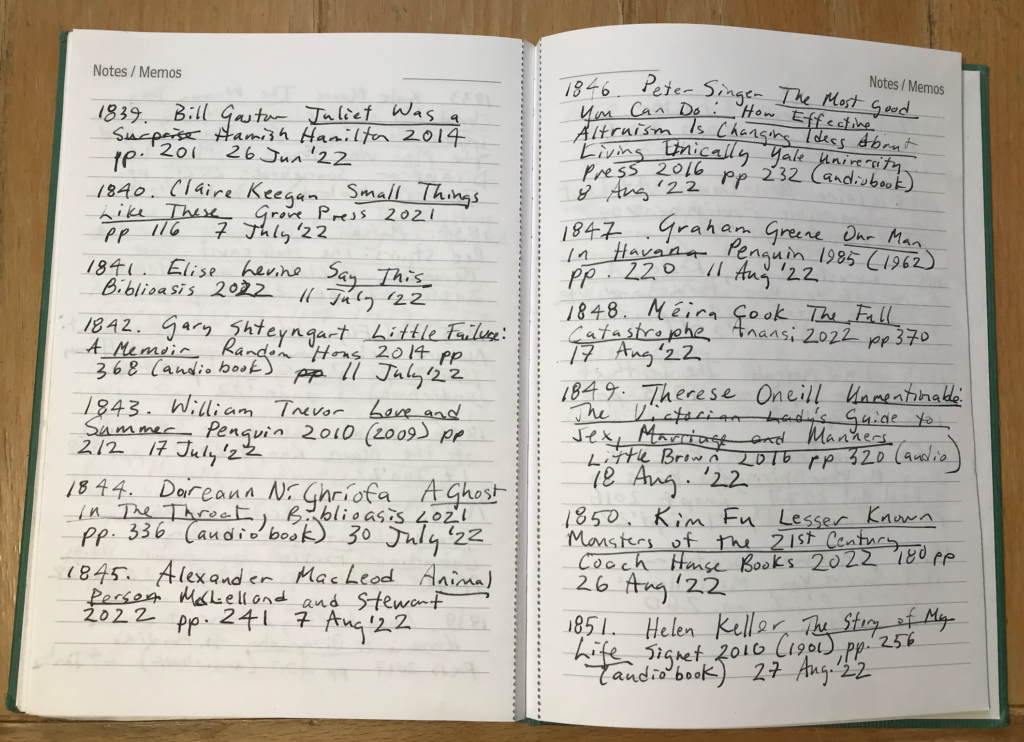 Notes / Memos
1839. Bill Gaston Juliet Was a
Surprise Hamish Hamilton 2014
pp. 201 26 Jun '22
1840. Claire Keegan Small Things
Like These Grove Press 2021
pp 116 7 July '22
1841. Elise Levine Say This
Biblioasis 2022 11 July '22
1842. Gary Shteyngart Little Failure:
A Memoir Random Hous 2014 pp
368 (audiobook) pp 11 July '22
1843. William Trevor Love and
Summer Penguin 2010 (2009) pp
212 17 July '22
1844. Doireann Ní Ghríofa A Ghost
in The Throat, Biblioasis 2021
pp. 336 (audiobook) 30 July '22
1845. Alexander MacLeod Animal
Person McLelland and Stewart
2022 pp. 241 7 Aug '22
Notes / Memos
1846. Peter Singer The Most Good
You Can Do: How Effective
Altruism Is Changing Ideas About
Living Ethically Yale University
Press 2016 pp 232 (audiobook)
8 Aug '22
1847 Graham Greene Our Man
in Havana Penguin 1985 (1962)
pp. 220 11 Aug '22
1848. Méira Cook The Full
Catastrophe Anansi 2022 pp 370
17 Aug '22
1849. Therese Oneill Unmentionable:
The Victorian Lady's Guide to
Sex, Marriage and Manners
Little Brown 2016 pp 320 (audio)
18 Aug. '22
1850. Kim Fu Lesser Known
Monsters of the 21st Century
Coach House Books 2022 180 pp
26 Aug '22
1851. Helen Keller The Story of My
Life Signet 2010 (1901) pp. 256
(audiobook) 27 Aug. '22